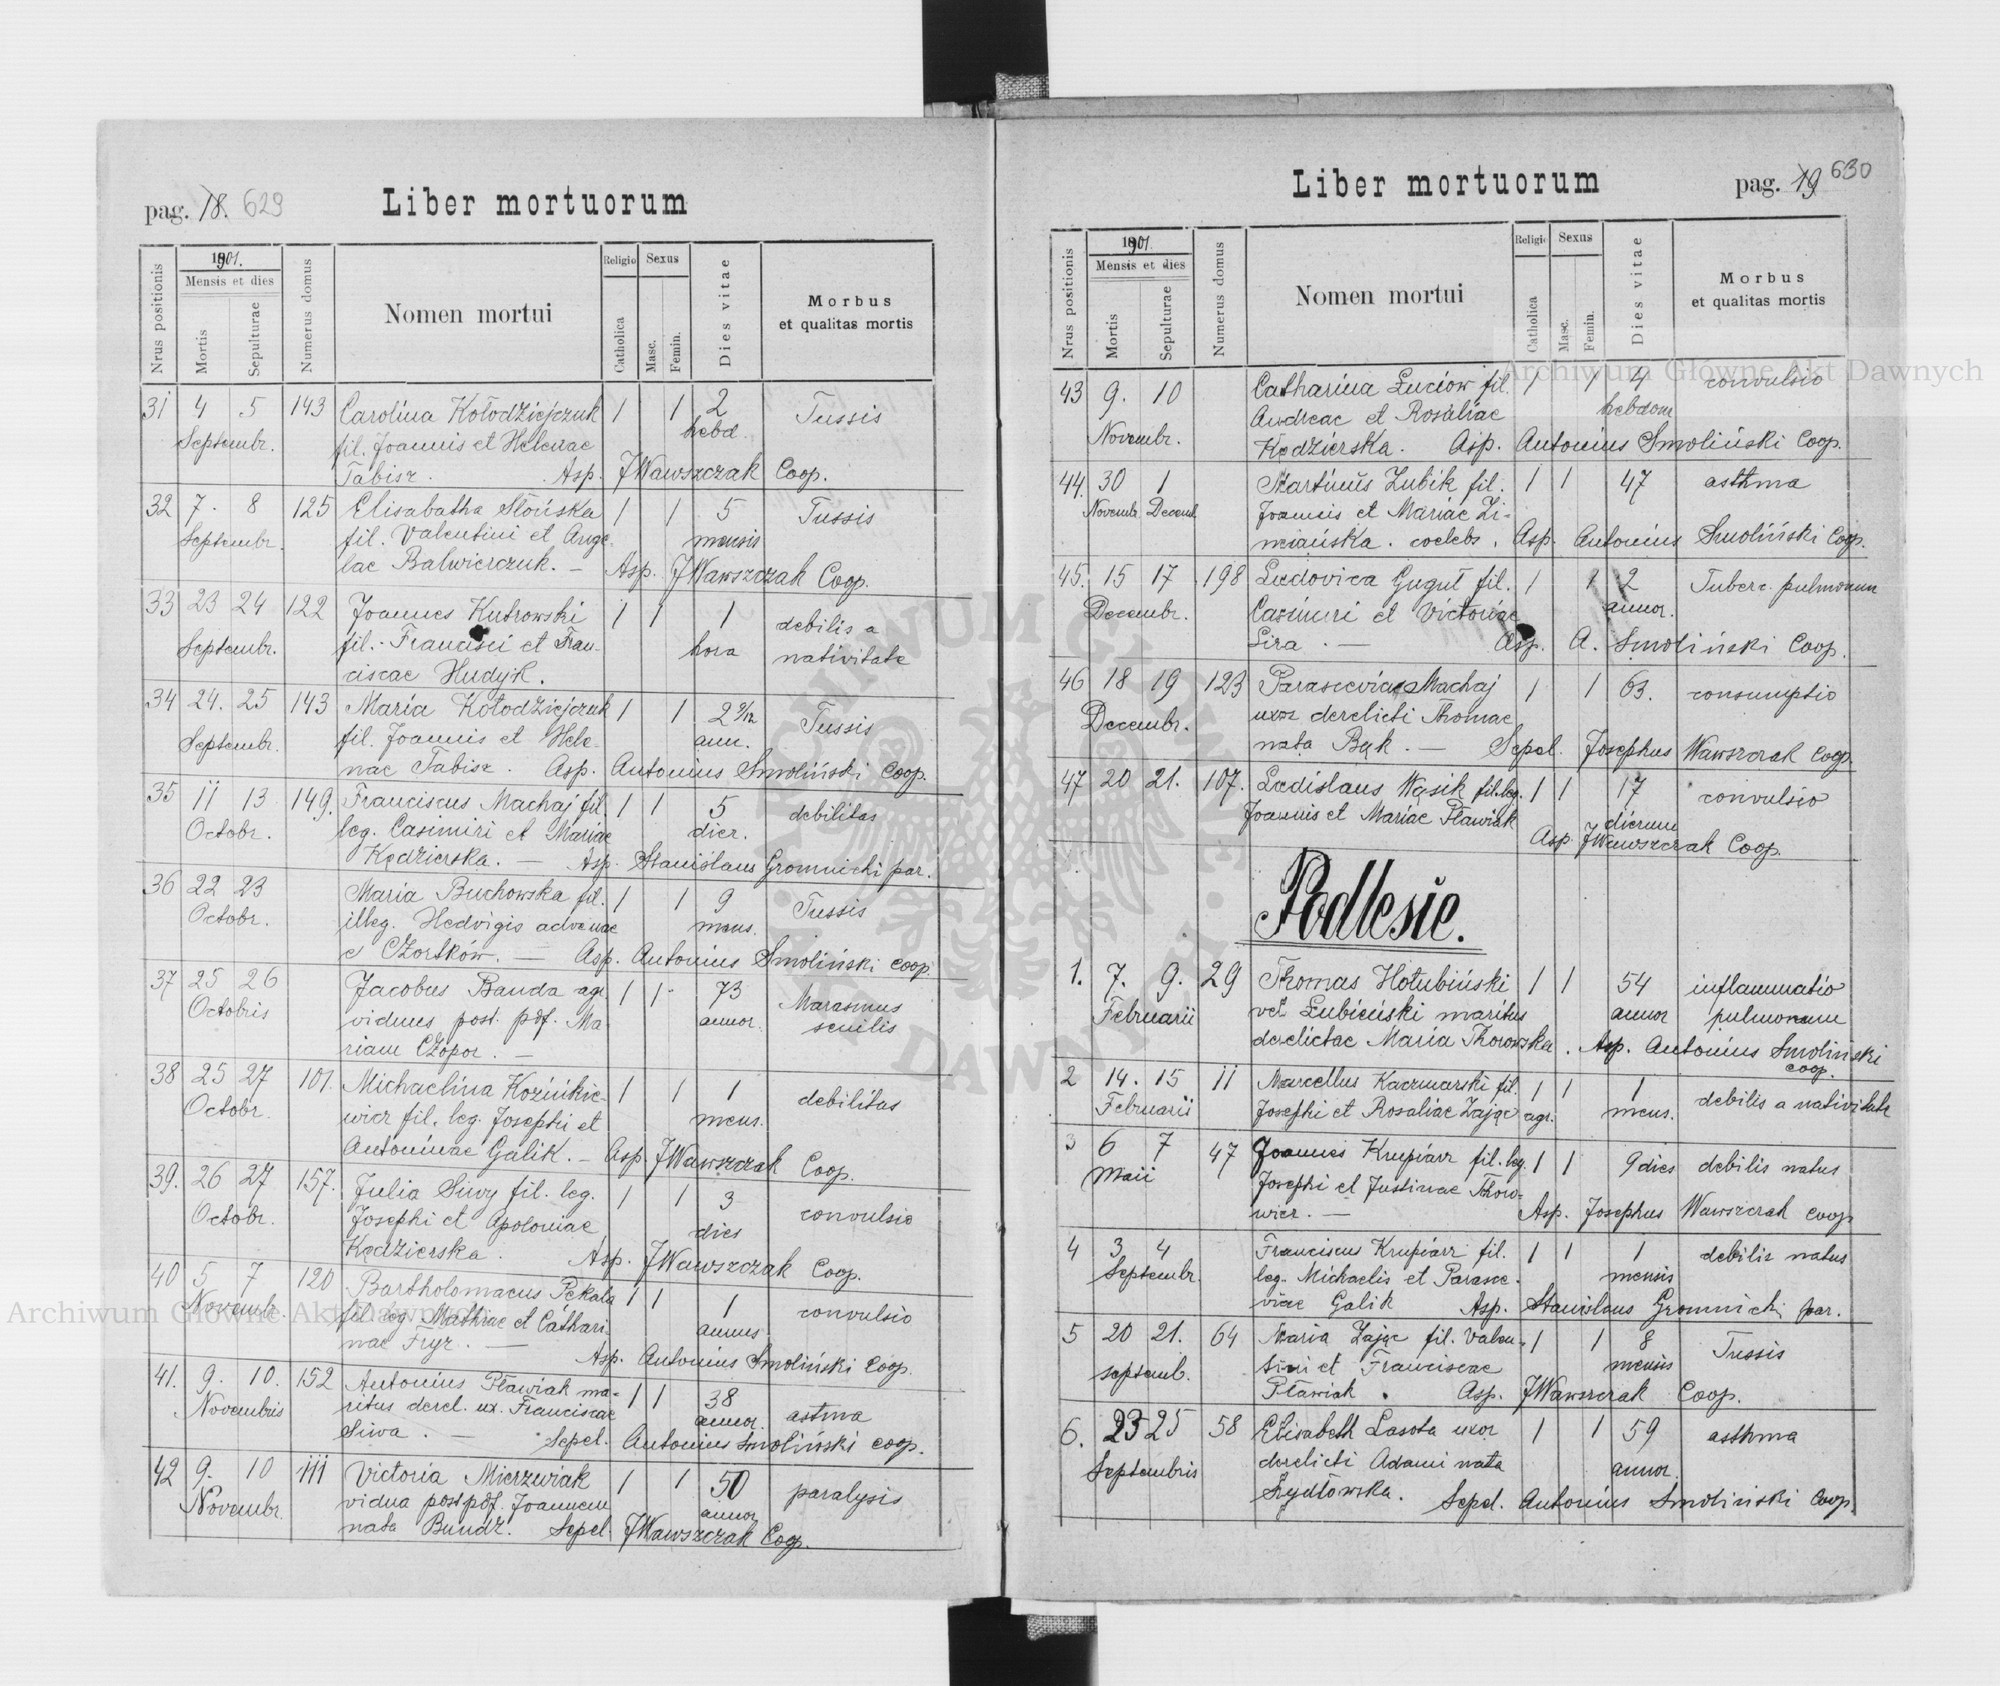 pag. 18. 629
Liber mortuorum
Nrus positionis
1901.
Mensis et dies
Mortis
Sepulturae
Numerus domus
Nomen mortui
Religio
Catholica
Sexus
Masc.
Femin.
Dies vitae
Morbus
et qualitas mortis
31 4 5 143 Carolina Kołodziejczuk 1 1 2 Tussis
Septembr. fil. Joannis et Helenae hebd.
Tabisz. Asp. JWawszczak Coop.
32 7. 8 125 Elisabatha Słońska 1 1 5 Tussis
Septembr. fil. Valentini et Ange mensis
lae Balwierczuk. — Asp. JWawszczak Coop.
33 23 24 122 Joannes Kutrowski 1 1 1 debilis a
Septembr. fil. Francisci et Fran- hora nativitate
ciscae Hudyk.
34 24. 25 143 Maria Kołodziejczuk 1 1 2 9/12 Tussis
Septembr. fil. Joannis et Hele- ann.
nae Tabisz. Asp. Antonius Smoliński Coop.
35 11 13 149. Franciscus Machaj fil. 1 1 5 debilitas
Octobr. leg. Casimiri et Mariae dier.
Kędzierska. — Asp. Stanislaus Gromnicki par.
36 22 23 Maria Buchowska fil. 1 1 9 Tussis
Octobr. illeg. Hedvigis advenae mens.
e Czortków. — Asp. Antonius Smoliński coop.
37 25 26 Jacobus Banda agr. 1 1 73 Marasmus
Octobris viduus post. pdf. Ma- annor. senilis
riam Czopor. —
38 25 27 101. Michaelina Kozińkie- 1 1 1 debilitas
Octobr. wicz fil. leg. Josephi et mens.
Antoninae Galik. — Asp. JWawszczak Coop.
39. 26 27 157. Julia Siwy fil. leg. 1 1 3 convulsio
Octobr. Josephi et Apoloniae dies
Kędzierska. Asp. JWawszczak Coop.
40 5 7 120 Bartholomaeus Pękala 1 1 1 convulsio
Novembr. fil. leg. Mathiae et Cathari- annus
nae Fryz. — Asp. Antonius Smoliński Coop.
41. 9. 10. 152 Antonius Pławiak ma- 1 1 38 astma
Novembris ritus derel. ux. Franciscae annor.
Siwa. — Sepel. Antonius Smoliński coop.
42 9. 10 111 Victoria Mierzwiak 1 1 50 paralysis
Novembr. vidua post pdf. Joannem annor.
nata Bundz. Sepel. JWawszczak Coop.
Liber mortuorum
pag. 19 630
Nrus positionis
1901.
Mensis et dies
Mortis
Sepulturae
Numerus domus
Nomen mortui
Religio
Catholica
Sexus
Masc.
Femin.
Dies vitae
Morbus
et qualitas mortis
43 9. 10 Catharina Łuciow fil. 1 1 4 convulsio
Novembr. Andreae et Rosaliae hebdom
Kędzierska. Asp. Antonius Smoliński Coop.
44. 30 1 Martinus Zubik fil. 1 1 47 asthma
Novemb. Decemb. Joannis et Mariae Zi-
miańska. coelebs. Asp. Antonius Smoliński Coop.
45. 15 17 198 Ludovica Gugul fil. 1 1 2 Tuberc. pulmonum
Decembr. Casimiri et Victoriae annor.
Lira. — Asp. A. Smoliński Coop.
46 18 19 123 Parascevia Machaj 1 1 63. consumptio
Decembr. uxor derelicti Thomae
nata Bąk. — Sepel. Josephus Wawszczak Coop.
47 20 21. 107. Ladislaus Wąsik fil. leg. 1 1 17 convulsio
Joannis et Mariae Pławiak dierum
Asp. JWawszczak Coop.
Podlesie.
1. 7. 9. 29 Thomas Hołubiński 1 1 54 inflammatio
Februarii vel Łubiciński maritus annor pulmonum
derelictae Maria Thorowska. Asp. Antonius Smoliński
coop.
2 14. 15 11 Marcellus Kaczmarski fil. 1 1 1 debilis a nativitate
Februarii Josephi et Rosaliae Zając agr. mens.
3 6 7 47 Joannes Krupiarz fil. leg. 1 1 9 dies debilis natus
Maii Josephi et Justinae Thoro-
wicz. — Asp. Josephus Wawszczak coop
4 3 4 Franciscus Krupiarz fil. 1 1 1 debilis natus
Septembr. leg. Michaelis et Parasce- mensis
viae Galik Asp. Stanislaus Gromnicki par.
5 20 21. 64 Maria Zając fil. Valen- 1 1 8 Tussis
septemb. tini et Franciscae mensis
Pławiak. Asp. JWawszczak Coop.
6. 23 25 58 Elisabeth Lasota uxor 1 1 59 asthma
Septembris derelicti Adami nata annor.
Szydłowska. Sepel. Antonius Smoliński Coop.
Archiwum Główne Akt Dawnych
Archiwum Główne Akt Dawnych
ARCHIWUM GŁÓWNE AKT DAWNYCH